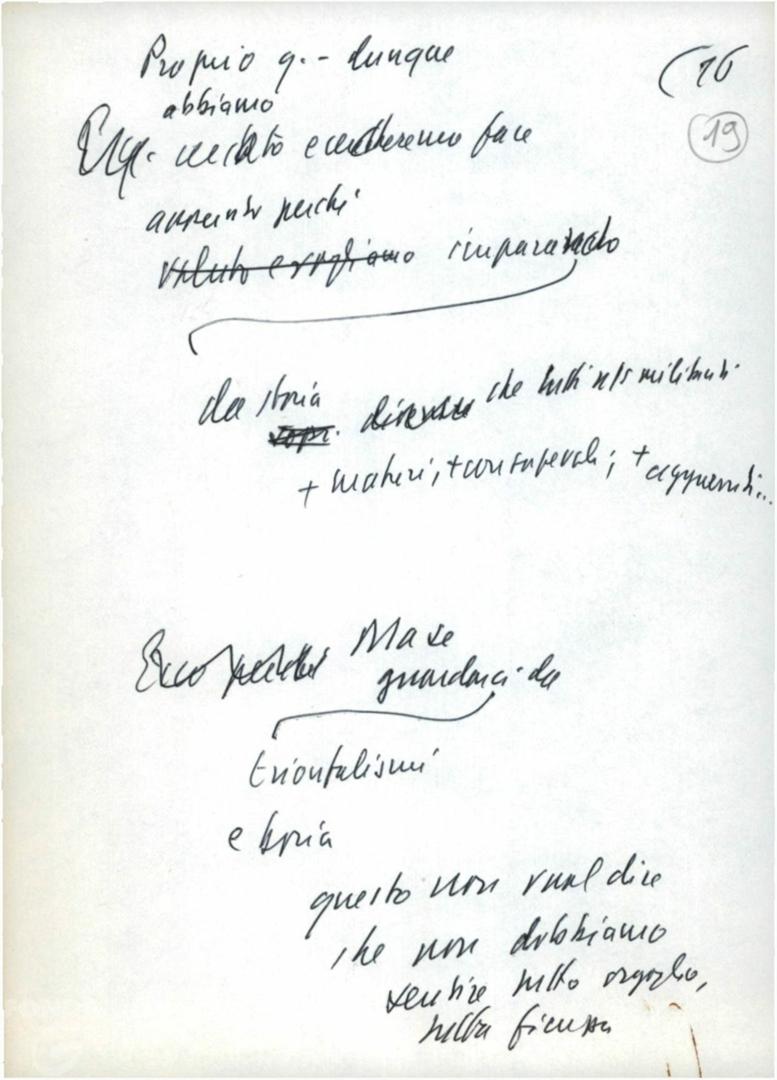 Proprio q. - dunque
(16
19
abbiamo
cercato e cercheremo fare
avvenire perché
voluto e vogliamo imparando
da storia
che tutti noi militanti
+ maturi, + consapevoli; + agguerriti...
Ecco perché Ma se
guardarci da
trionfalismi
e boria
questo non vuol dire
che non dobbiamo
sentire tutto orgoglio,
tutta fierezza